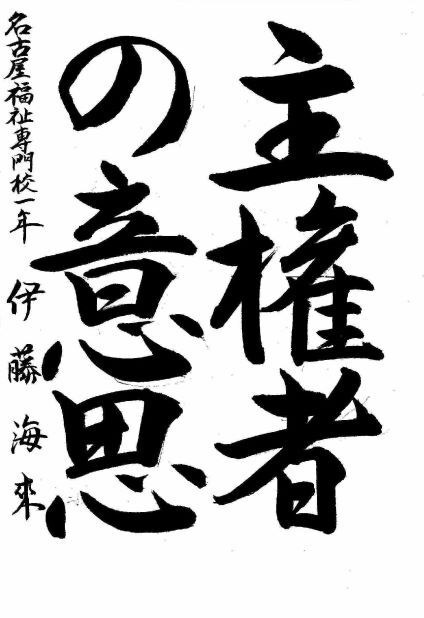 主権者
の意思
名古屋福祉専門校一年 伊藤海來